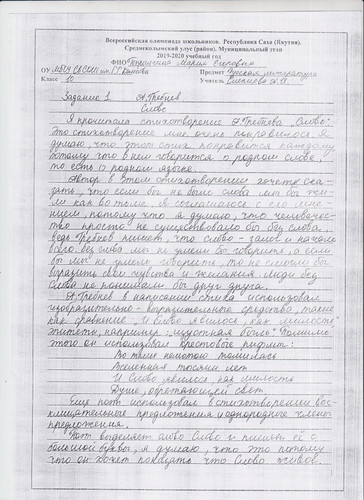 Всероссийская олимпиада школьников. Республика Саха (Якутия).
Среднеколымский улус (район). Муниципальный этап
2019-2020 учебный год
ФИО Мария Егоровна
ОУ МБОУ СКСОШ им. Предмет литература
Класс 10 Учитель
Задание 1. А. Гребнев
Слово
Я прочитала стихотворение А. Гребнева "Слово".
Это стихотворение мне очень понравилось. Я
думаю, что этот стих понравится каждому
потому что в нём говорится о родном слове,
то есть о родном языке.
Автор в этом стихотворении хочет ска-
зать, что если бы не было слова, мы бы жи-
ли как во тьме. Я соглашаюсь с его мне-
нием, потому что я думаю, что человечес-
тво просто не существовало бы без слова,
ведь Гребнев пишет, что слово - залог и начало
всего. Без слова мы не умели бы говорить, а если
бы мы не умели говорить, то не смогли бы
выразить свои чувства и желания. Люди без
слова не понимали бы друг друга.
А. Гребнев в написании стиха использовал
изобразительно - выразительные средства, такие
как сравнение "и слово явилось, как милость"
эпитеты, например "изустная боль". Помимо
этого он использовал крестовые рифмы:
Во тьме немотою томилась
Вселенная тысячи лет
И Слово явилось, как милость
Душе, обретающей свет.
Ещё поэт использовал в стихотворении вос-
клицательные предложения и однородные члены
предложения.
Поэт выделяет слово Слово и пишет её с
большой буквы, я думаю, что это потому
что он хочет показать что Слово живое.